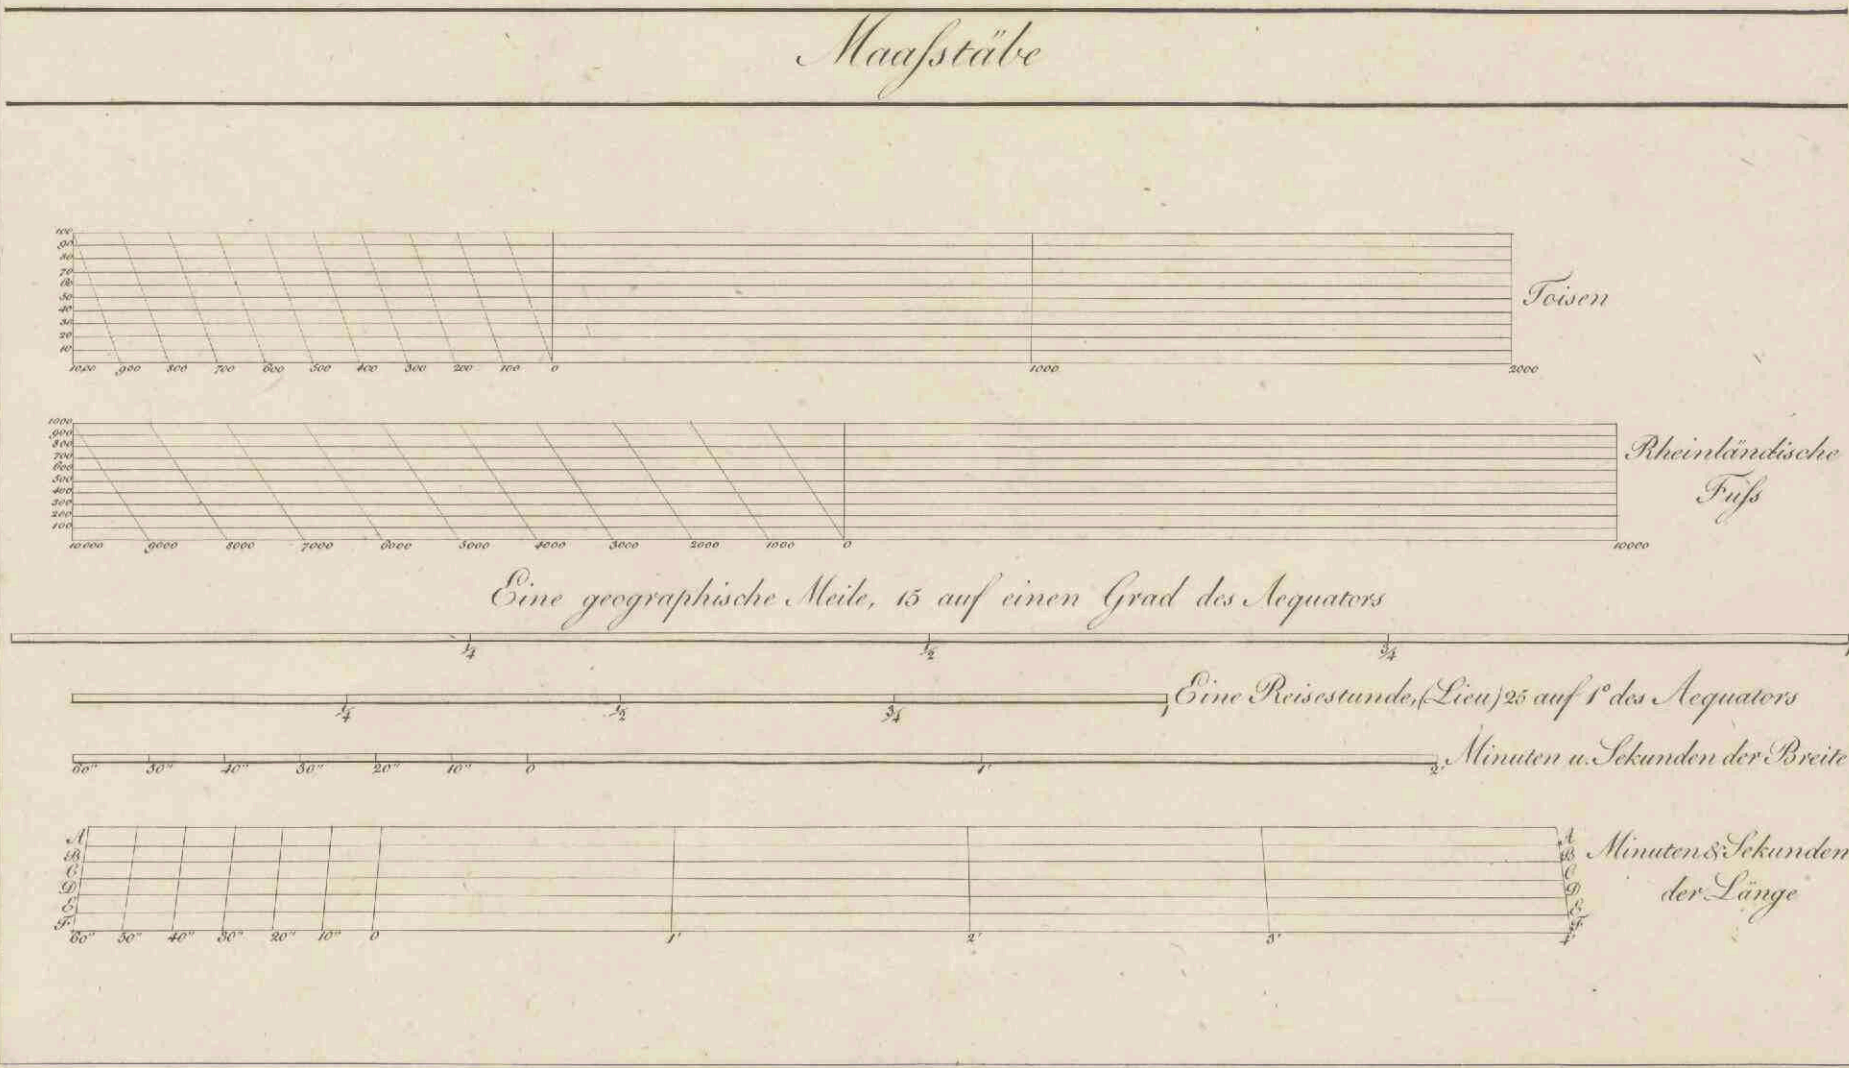 Maaſstäbe
100
90
80
70
60
50
40
30
20
10
1000 900 800 700 600 500 400 300 200 100 0 1000 2000
Toisen
1000
900
800
700
600
500
400
300
200
100
10000 9000 8000 7000 6000 5000 4000 3000 2000 1000 0 10000
Rheinländische
Fuſs
Eine geographische Meile, 15 auf einen Grad des Aequators
1/4 1/2 3/4 1
Eine Reisestunde, (Lieu) 25 auf 1° des Aequators
1/4 1/2 3/4 1
Minuten u. Sekunden der Breite
60" 50" 40" 30" 20" 10" 0 1' 2'
A A
B B
C C
D D
E E
F F
Minuten & Sekunden
der Länge
60" 50" 40" 30" 20" 10" 0 1' 2' 3' 4'